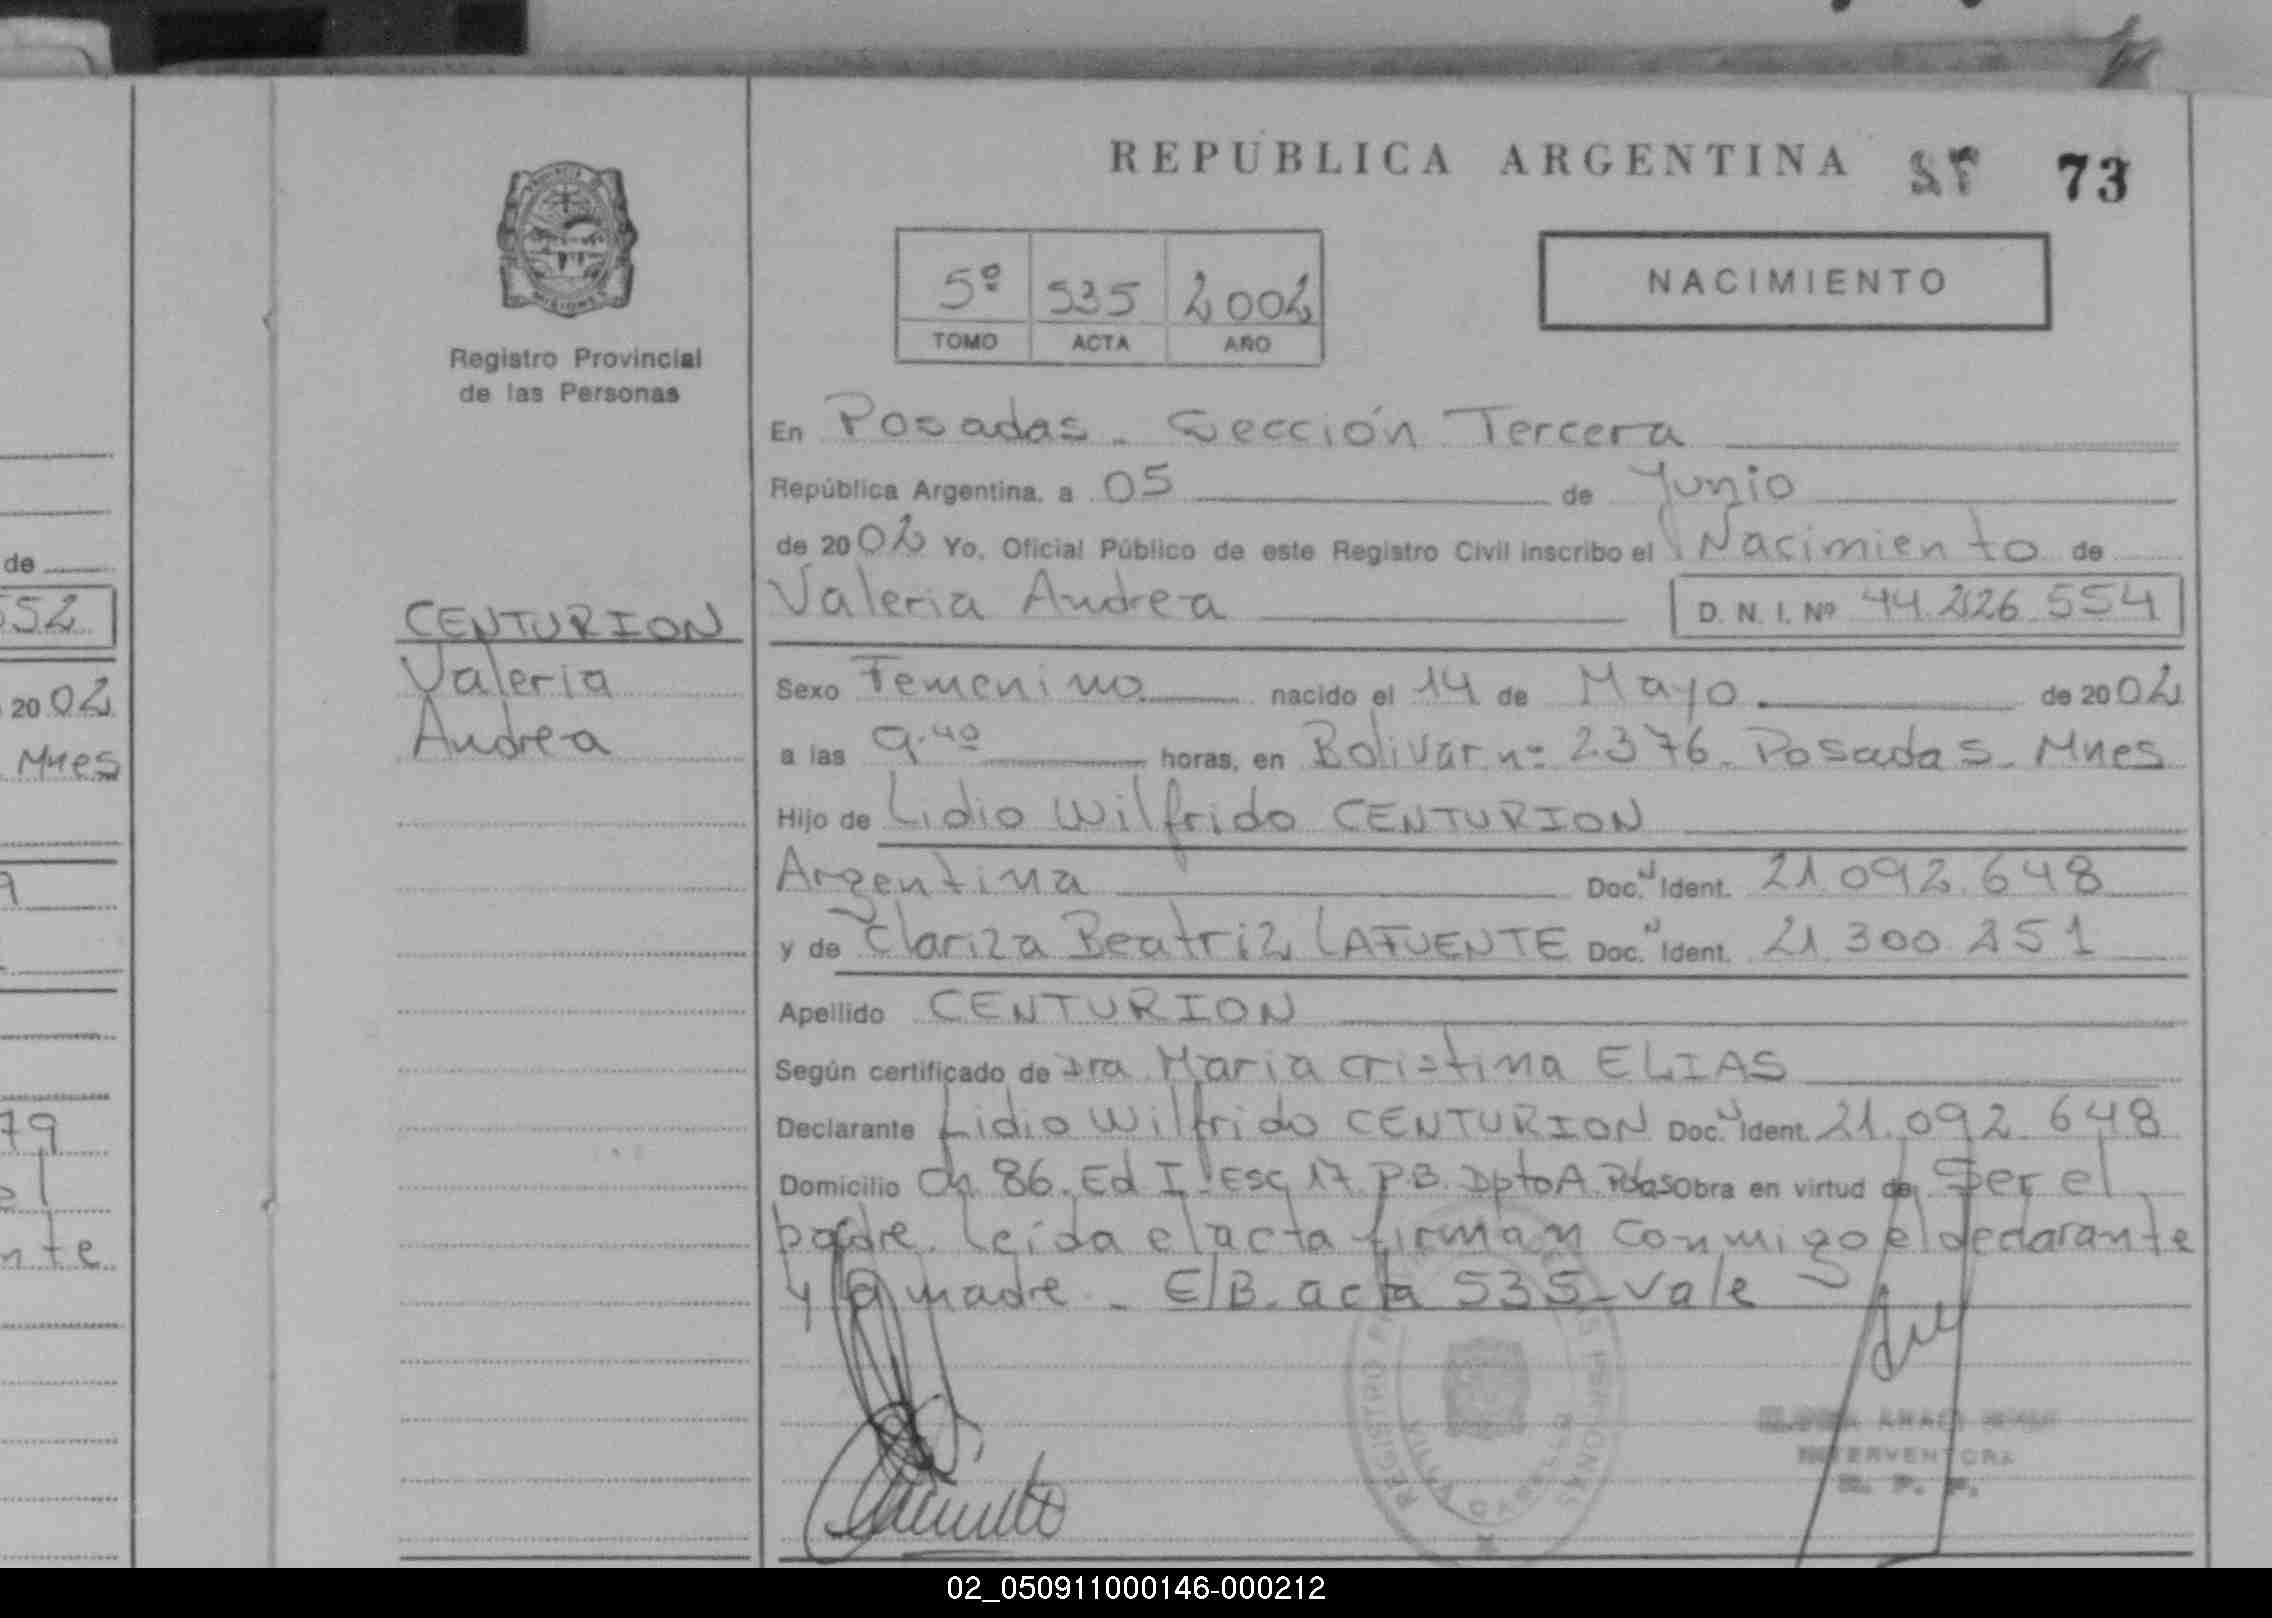 REPUBLICA ARGENTINA 73
NACIMIENTO
5º 535 2002
TOMO ACTA AÑO
PROVINCIA DE
MISIONES
Registro Provincial
de las Personas
En Posadas - Sección Tercera
República Argentina, a 05 de Junio
de 2002 Yo, Oficial Público de este Registro Civil inscribo el Nacimiento de
Valeria Andrea D. N. I. Nº 44.226.554
CENTURION
Valeria
Andrea
Sexo Femenino nacido el 14 de Mayo de 2002
a las 9.40 horas, en Bolivar nº 2376 - Posadas - Mnes
Hijo de Lidio Wilfrido CENTURION
Argentina Doc. Ident. 21.092.648
y de Clariza Beatriz LAFUENTE Doc. Ident. 21.300.251
Apellido CENTURION
Según certificado de Dra. Maria Cristina ELIAS
Declarante Lidio Wilfrido CENTURION Doc. Ident. 21.092.648
Domicilio Ch 86. Ed I. Esc 17 P.B. Dpto A. Pdas Obra en virtud de Ser el
padre. Leída el acta firman conmigo el declarante
y la madre. - E/B. acta 535 - Vale
REGISTRO PERSONAS
VILLA CABELLO
INTERVENTORA
R. P. P.
de
552
2002
Mnes
79
el
nte
02_050911000146-000212